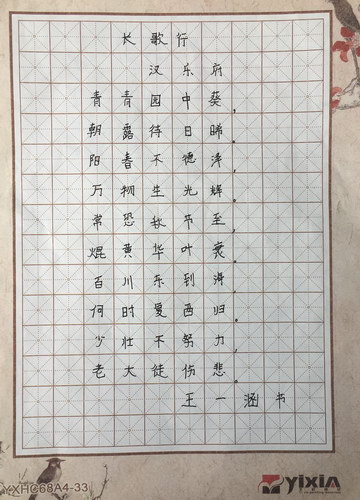 长歌行
汉乐府
青青园中葵，
朝露待日晞。
阳春不德泽，
万物生光辉。
常恐秋节至，
焜黄华叶衰。
百川东到海，
何时复西归。
少壮不努力，
老大徒伤悲。
王一涵书
YXHC68A4-33
yixin